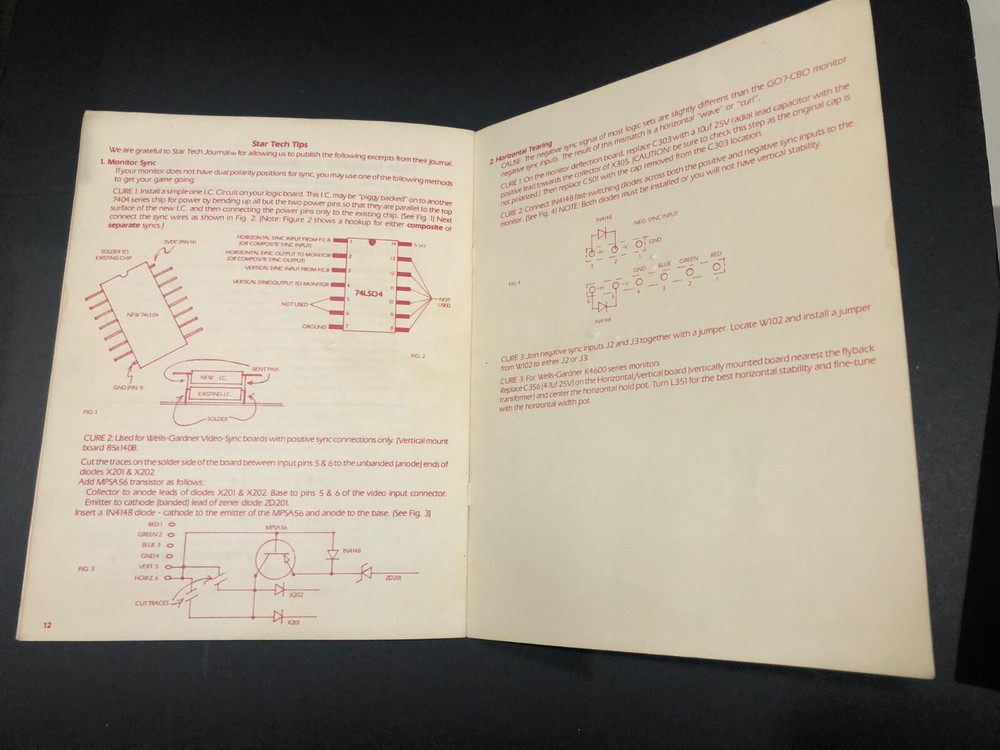 Star Tech Tips
We are grateful to Star Tech Journal™ for allowing us to publish the following excerpts from their journal.
1. Monitor Sync
If your monitor does not have dual polarity positions for sync, you may use one of the following methods
to get your game going.
CURE 1: Install a simple one I.C. Circuit on your logic board. This I.C. may be "piggy backed" on to another
7404 series chip for power by bending up all but the two power pins so that they are parallel to the top
surface of the new I.C. and then connecting the power pins only to the existing chip. (See Fig. 1) Next
connect the sync wires as shown in Fig. 2. (Note: Figure 2 shows a hookup for either composite or
separate syncs.)
SOLDER TO
EXISTING CHIP
5VDC (PIN 14)
NEW 74LS04
GND (PIN 7)
FIG. 1
NEW I.C.
EXISTING I.C.
BENT PINS
SOLDER
HORIZONTAL SYNC INPUT FROM P.C.B.
(OR COMPOSITE SYNC INPUT)
HORIZONTAL SYNC OUTPUT TO MONITOR
(OR COMPOSITE SYNC OUTPUT)
VERTICAL SYNC INPUT FROM P.C.B.
VERTICAL SYNC OUTPUT TO MONITOR
NOT USED
GROUND
1
2
3
4
5
6
7
74LS04
14
13
12
11
10
9
8
NOT
USED
FIG. 2
CURE 2: Used for Wells-Gardner Video-Sync boards with positive sync connections only. (Vertical mount
board 85x140B.
Cut the traces on the solder side of the board between input pins 5 & 6 to the unbanded (anode) ends of
diodes X201 & X202.
Add MPSA56 transistor as follows:
Collector to anode leads of diodes X201 & X202. Base to pins 5 & 6 of the video input connector.
Emitter to cathode (banded) lead of zener diode ZD201.
Insert a 1N4148 diode - cathode to the emitter of the MPSA56 and anode to the base. (See Fig. 3)
RED 1
GREEN 2
BLUE 3
GND 4
VERT. 5
HORIZ. 6
FIG. 3
CUT TRACES
MPSA56
1N4148
ZD201
X202
X201
12
2. Horizontal Tearing
CAUSE: The negative sync signal of most logic sets are slightly different than the GO7-CBO monitor
negative sync inputs. The result of this mismatch is a horizontal "wave" or "curl".
CURE 1: On the monitor deflection board, replace C303 with a 10uf 25V radial lead capacitor with the
positive lead towards the collector of X305. (CAUTION: be sure to check this step as the original cap is
not polarized.) Then replace C501 with the cap removed from the C303 location.
CURE 2: Connect 1N4148 fast-switching diodes across both the positive and negative sync inputs to the
monitor. (See Fig. 4) NOTE: Both diodes must be installed or you will not have vertical stability.
1N4148
NEG. SYNC INPUT
-H
-V
GND
3
2
1
FIG. 4
+H
+V
GND
BLUE
GREEN
RED
6
5
4
3
2
1
1N4148
CURE 3: Join negative sync inputs J2 and J3 together with a jumper. Locate W102 and install a jumper
from W102 to either J2 or J3.
CURE 3: For Wells-Gardner K4600 series monitors
Replace C356 (4.7uf 25V) on the Horizontal/Vertical board (vertically mounted board nearest the flyback
transformer) and center the horizontal hold pot. Turn L351 for the best horizontal stability and fine-tune
with the horizontal width pot.